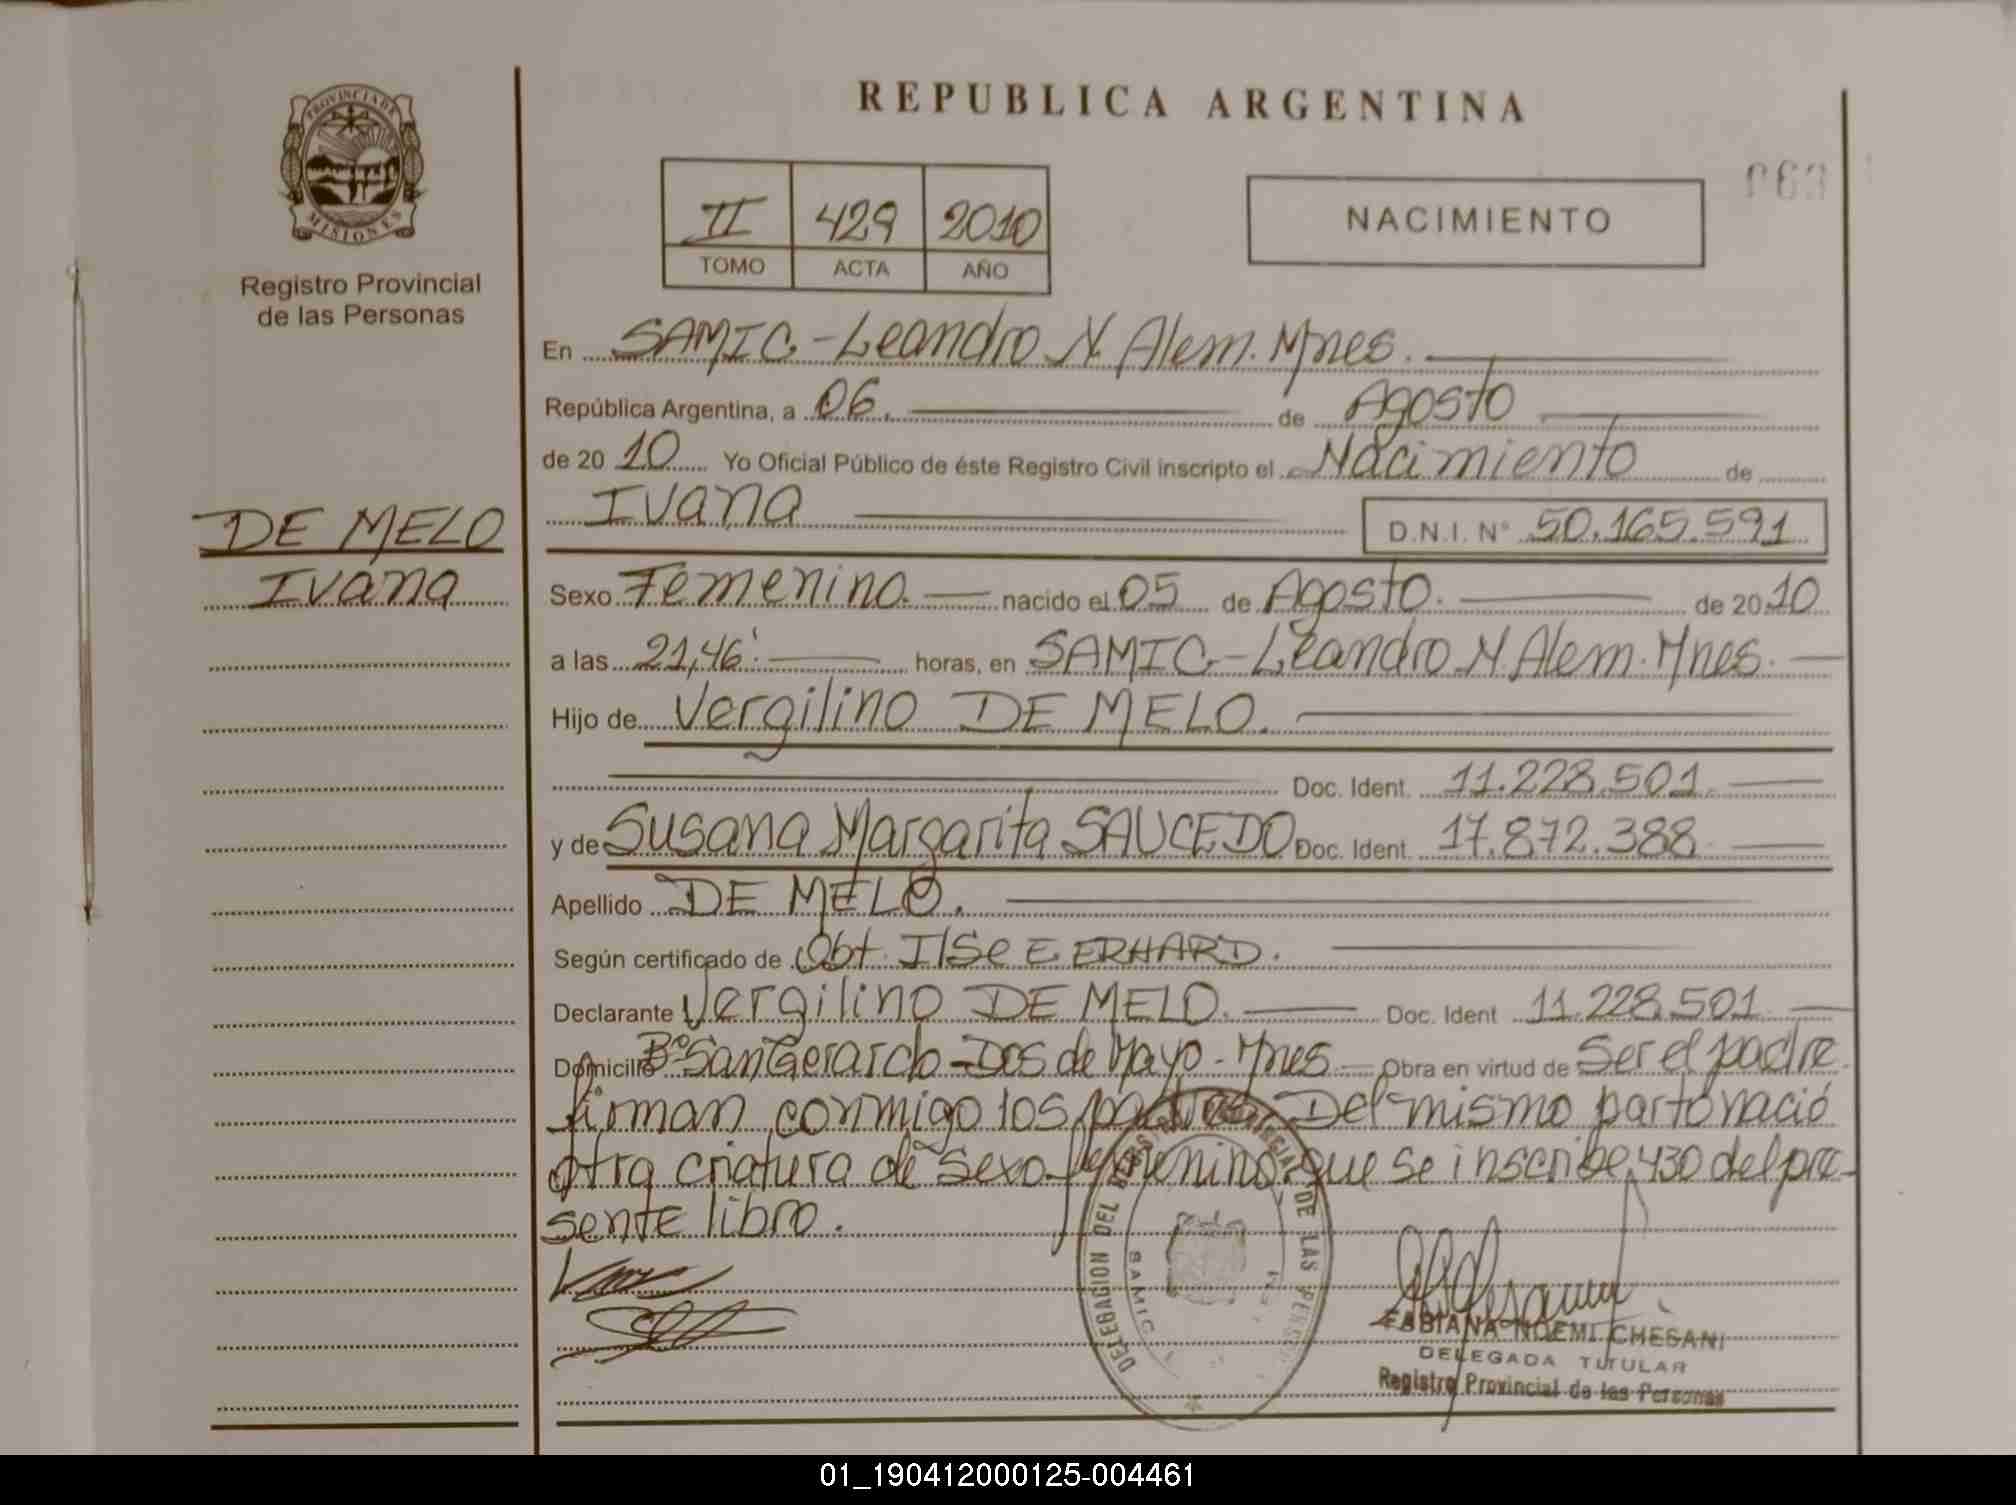 REPUBLICA ARGENTINA
PROVINCIA DE
MISIONES
Registro Provincial
de las Personas
II 429 2010
TOMO ACTA AÑO
NACIMIENTO
063
En SAMIC.-Leandro N. Alem. Mnes.
República Argentina, a 06. de Agosto
de 2010 Yo Oficial Público de éste Registro Civil inscripto el Nacimiento de
Ivana D.N.I. N° 50.165.591
DE MELO
Ivana
Sexo Femenino. nacido el 05 de Agosto. de 2010
a las 21,46' horas, en SAMIC-Leandro N. Alem. Mnes.
Hijo de Vergilino DE MELO.
Doc. Ident. 11.228.501
y de Susana Margarita SAUCEDO Doc. Ident. 17.872.388
Apellido DE MELO.
Según certificado de Obt. Ilse E. ERHARD.
Declarante Vergilino DE MELO. Doc. Ident 11.228.501
Domicilio B° San Gerardo-Dos de Mayo-Mnes Obra en virtud de Ser el padre
firman conmigo los padres. Del mismo parto nació
otra criatura de sexo femenino. que se inscribe 430 del pre-
sente libro.
DELEGACION DEL REGISTRO PROVINCIAL DE LAS PERSONAS
SAMIC
FABIANA NOEMI CHESANI
DELEGADA TITULAR
Registro Provincial de las Personas
01_190412000125-004461